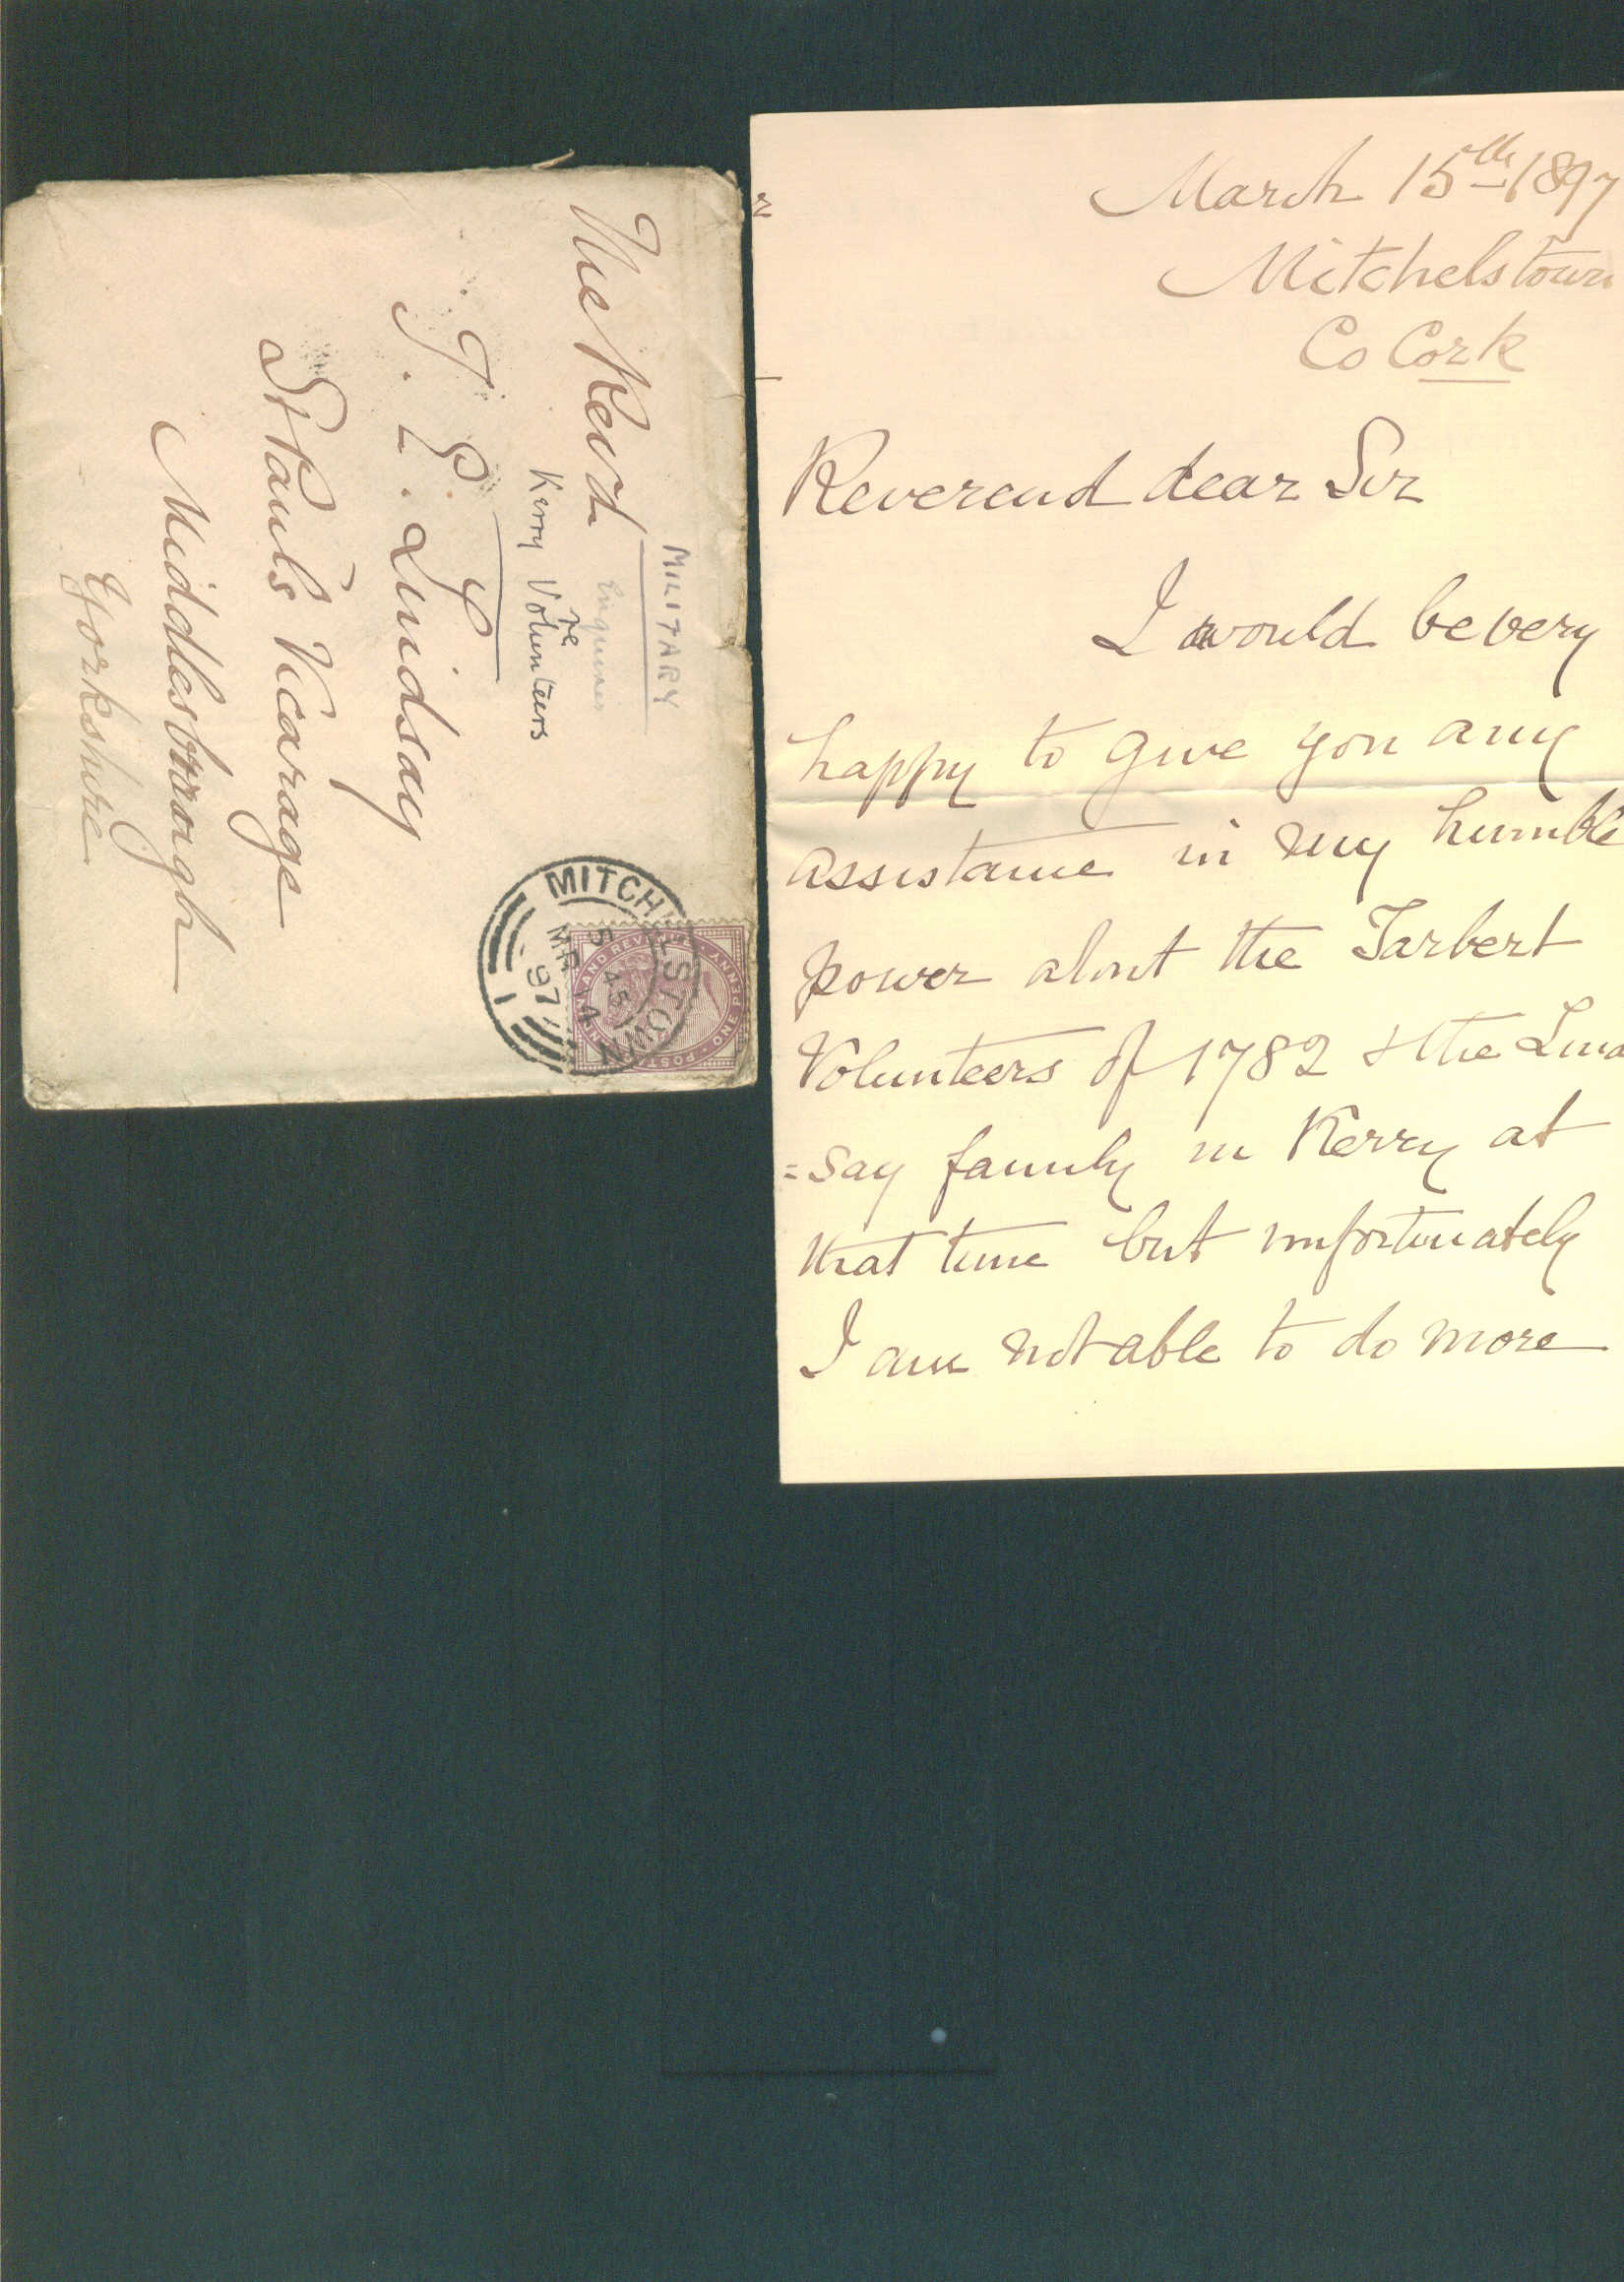 The Revd
T. E. Lindsay
St Pauls Vicarage
Middlesbrough
Yorkshire
MILITARY
Enquiries
re
Kerry Volunteers
MITCHELSTOWN
5 45
MR 14
97
1
POSTAGE AND INLAND REVENUE ONE PENNY
March 15th 1897
Mitchelstown
Co Cork
Reverend dear Sir
I would be very
happy to give you any
assistance in my humble
power about the Tarbert
Volunteers of 1782 & the Lind
=say family in Kerry at
that time but unfortunately
I am not able to do more